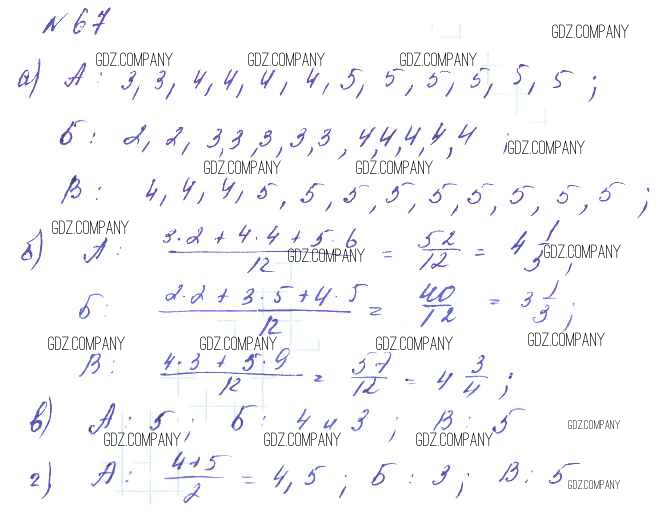 № 67
GDZ.COMPANY
GDZ.COMPANY GDZ.COMPANY GDZ.COMPANY
а) А: 3, 3, 4, 4, 4, 4, 5, 5, 5, 5, 5, 5;
Б: 2, 2, 3, 3, 3, 3, 3, 4, 4, 4, 4, 4;
GDZ.COMPANY
GDZ.COMPANY GDZ.COMPANY
В: 4, 4, 4, 5, 5, 5, 5, 5, 5, 5, 5, 5;
GDZ.COMPANY
б) А: (3·2 + 4·4 + 5·6)/12 = 52/12 = 4 1/3;
GDZ.COMPANY GDZ.COMPANY
Б: (2·2 + 3·5 + 4·5)/12 = 40/12 = 3 1/3;
GDZ.COMPANY GDZ.COMPANY GDZ.COMPANY GDZ.COMPANY
В: (4·3 + 5·9)/12 = 57/12 = 4 3/4;
в) А: 5; Б: 4 и 3; В: 5
GDZ.COMPANY
GDZ.COMPANY GDZ.COMPANY GDZ.COMPANY
г) А: (4+5)/2 = 4,5; Б: 3; В: 5
GDZ.COMPANY